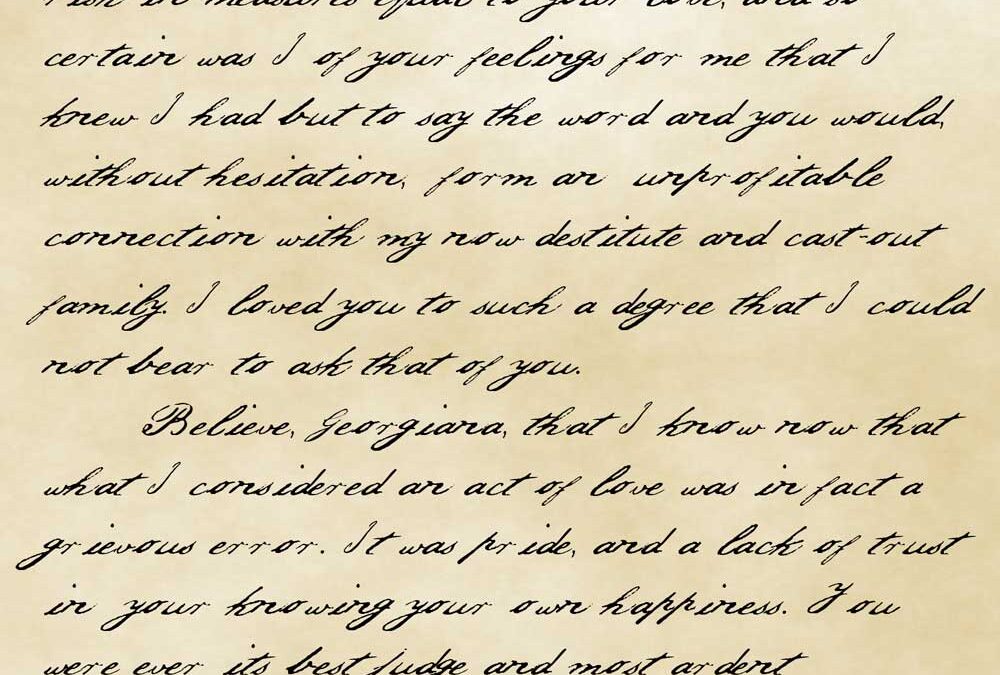 rish in measures equal to your love, and so
certain was I of your feelings for me that I
knew I had but to say the word and you would,
without hesitation, form an unprofitable
connection with my now destitute and cast-out
family. I loved you to such a degree that I could
not bear to ask that of you.
Believe, Georgiana, that I know now that
what I considered an act of love was in fact a
grievous error. It was pride, and a lack of trust
in your knowing your own happiness. You
were ever its best judge and most ardent